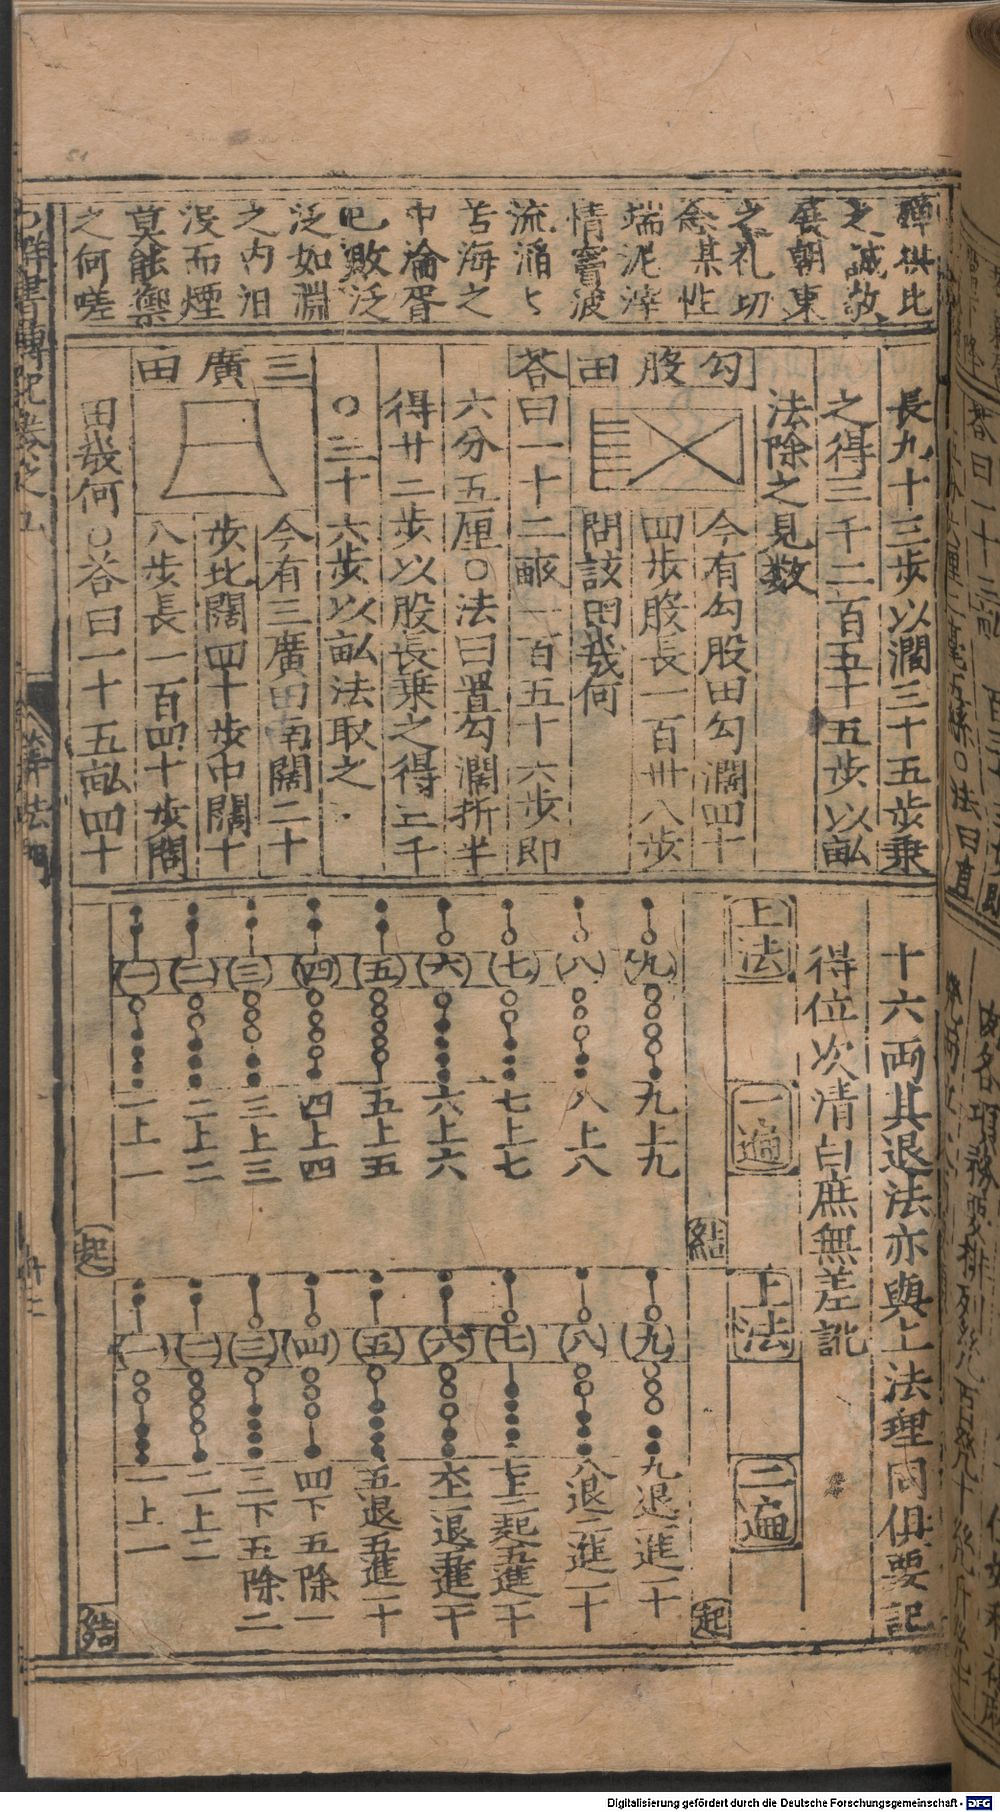 禪供比
之誠敬
展朝東
之礼切
念某性
端泥滓
情竇波
流滔々
苦海之
中淪胥
已敗泛
泛如淵
之内汨
没而煙
莫能禦
之何嗟
長九十三歩以濶三十五歩乗
之得三千二百五十五歩以畝
法除之見数
勾股田
今有勾股田勾濶四十
四歩股長一百卅八歩
問該田幾何
荅曰一十二畝一百五十六歩即
六分五厘○法曰置勾濶折半
得廿二歩以股長乗之得三千
○三十六歩以畝法取之
三廣田
今有三廣田南闊二十
歩北闊四十歩中闊十
八歩長一百四十歩問
田幾何○荅曰一十五畝四十
十六両其退法亦與上法理同俱要記
得位次清白庶無差訛
上法
一遍
結
九 九上九
八 八上八
七 七上七
六 六上六
五 五上五
四 四上四
三 三上三
二 二上二
一 一上一
起
上法
二遍
起
九 九退一進一十
八 八退二進一十
七 七上二起五進一十
六 六上一退五進一十
五 五退五進一十
四 四下五除一
三 三下五除二
二 二上二
一 一上一
結
算法門
Digitalisierung gefördert durch die Deutsche Forschungsgemeinschaft - DFG